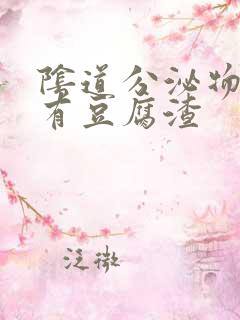 陰道分泌物
有豆腐渣
泛微